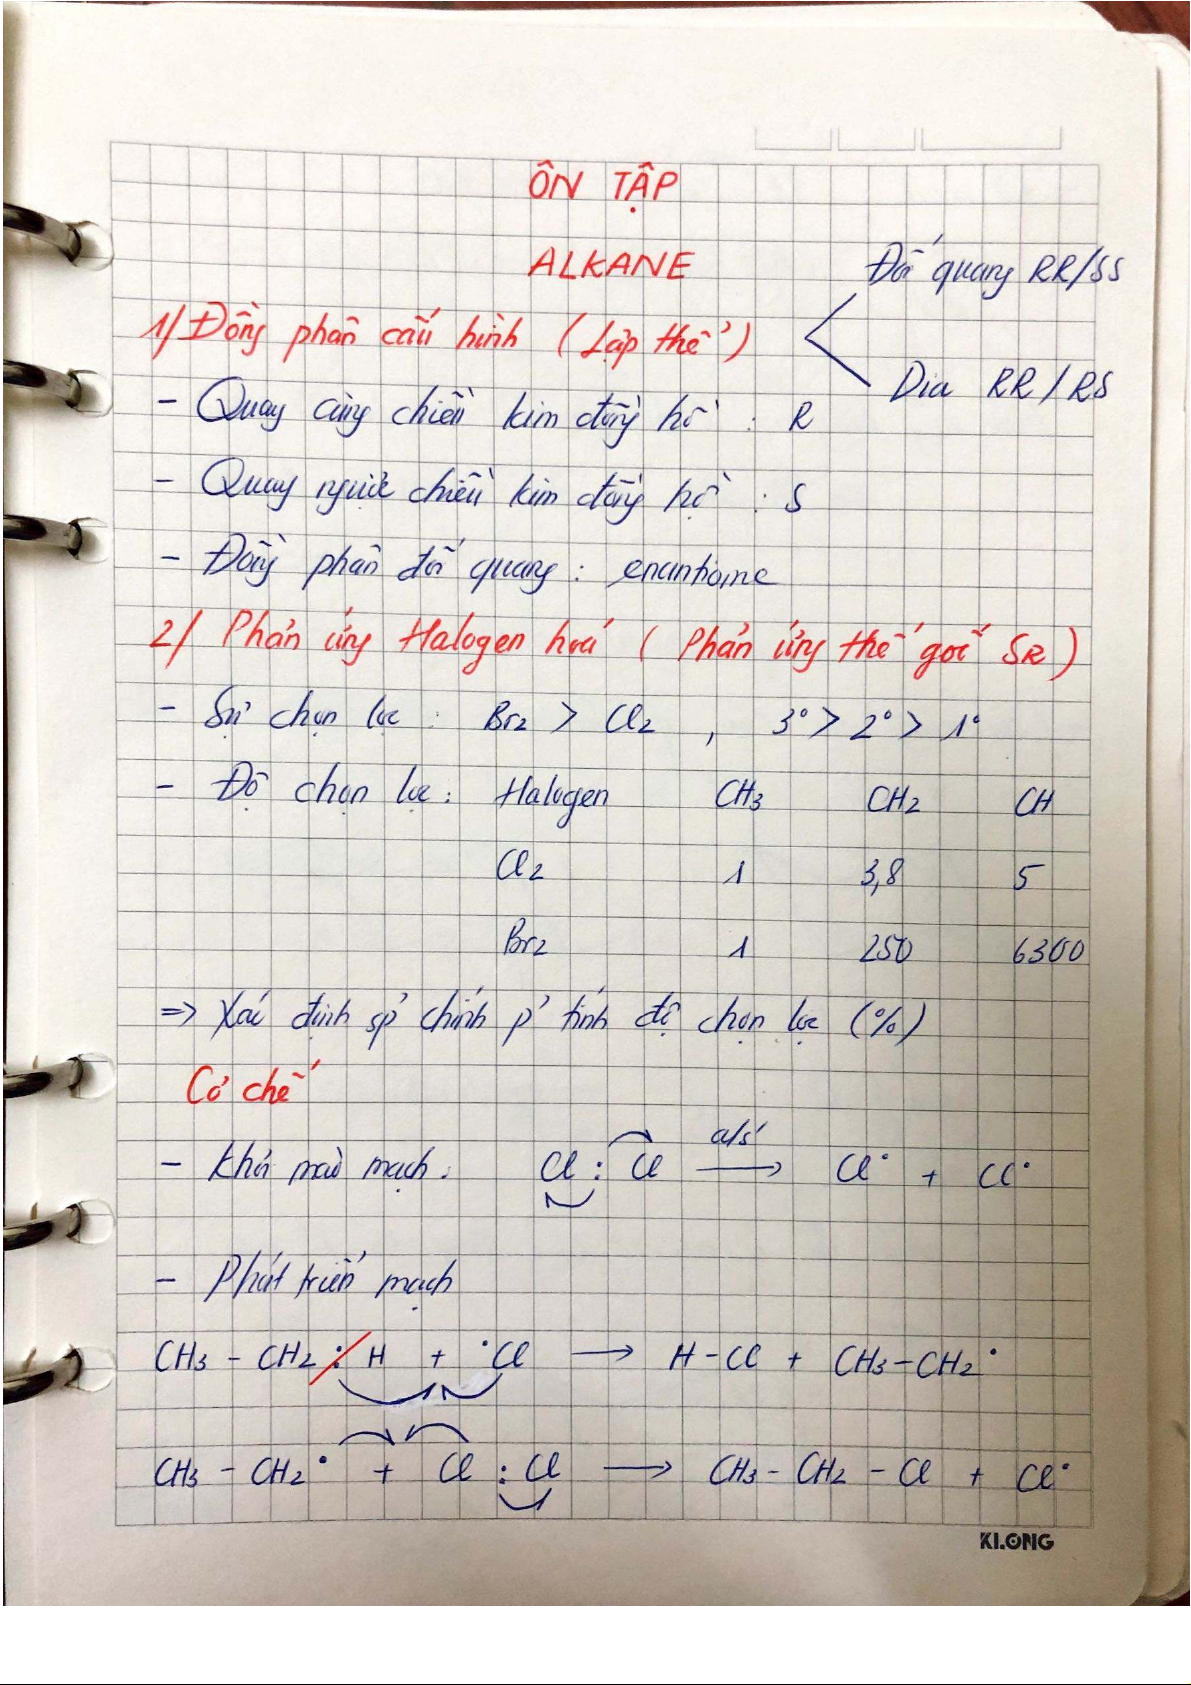 ÔN TẬP
ALKANE
Đối quang RR/SS
1/ Đồng phân cấu hình (Lập thể)
Dia RR/RS
- Quay cùng chiều kim đồng hồ : R
- Quay ngược chiều kim đồng hồ : S
- Đồng phân đối quang : enantiome
2/ Phản ứng Halogen hoá (Phản ứng thế gốc SR)
- Sự chọn lọc : Br2 > Cl2 , 3° > 2° > 1°
- Độ chọn lọc : Halogen CH3 CH2 CH
Cl2 1 3,8 5
Br2 1 250 6300
=> Xác định sp chính p' tính độ chọn lọc (%)
Cơ chế
- Khơi mào mạch : Cl : Cl a/s' → Cl• + Cl•
- Phát triển mạch
CH3 - CH2 : H + •Cl → H - Cl + CH3 - CH2•
CH3 - CH2• + Cl : Cl → CH3 - CH2 - Cl + Cl•
KLONG